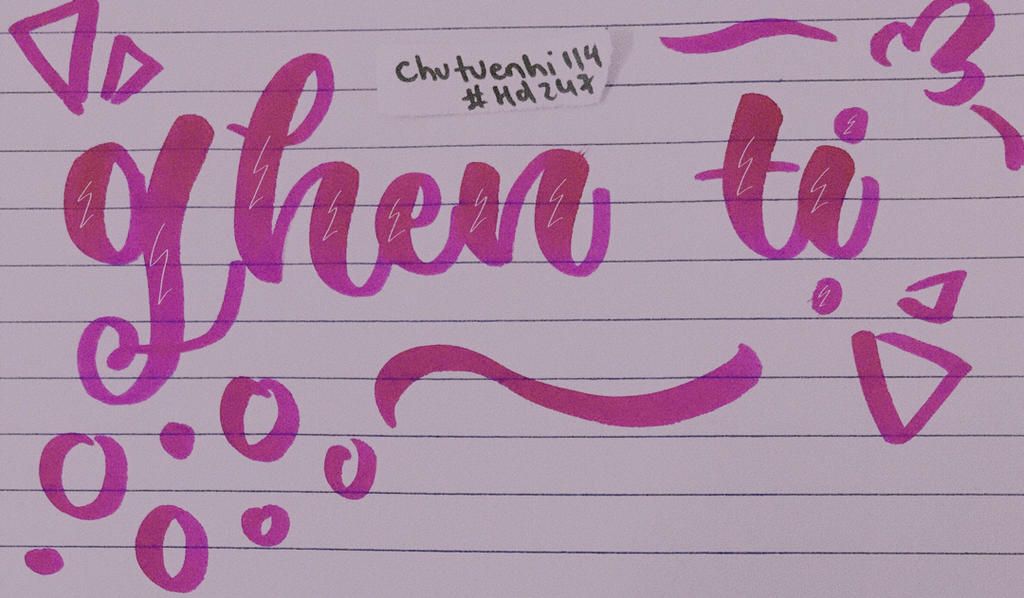 chutuenhi114
#Hd247
ghen tị